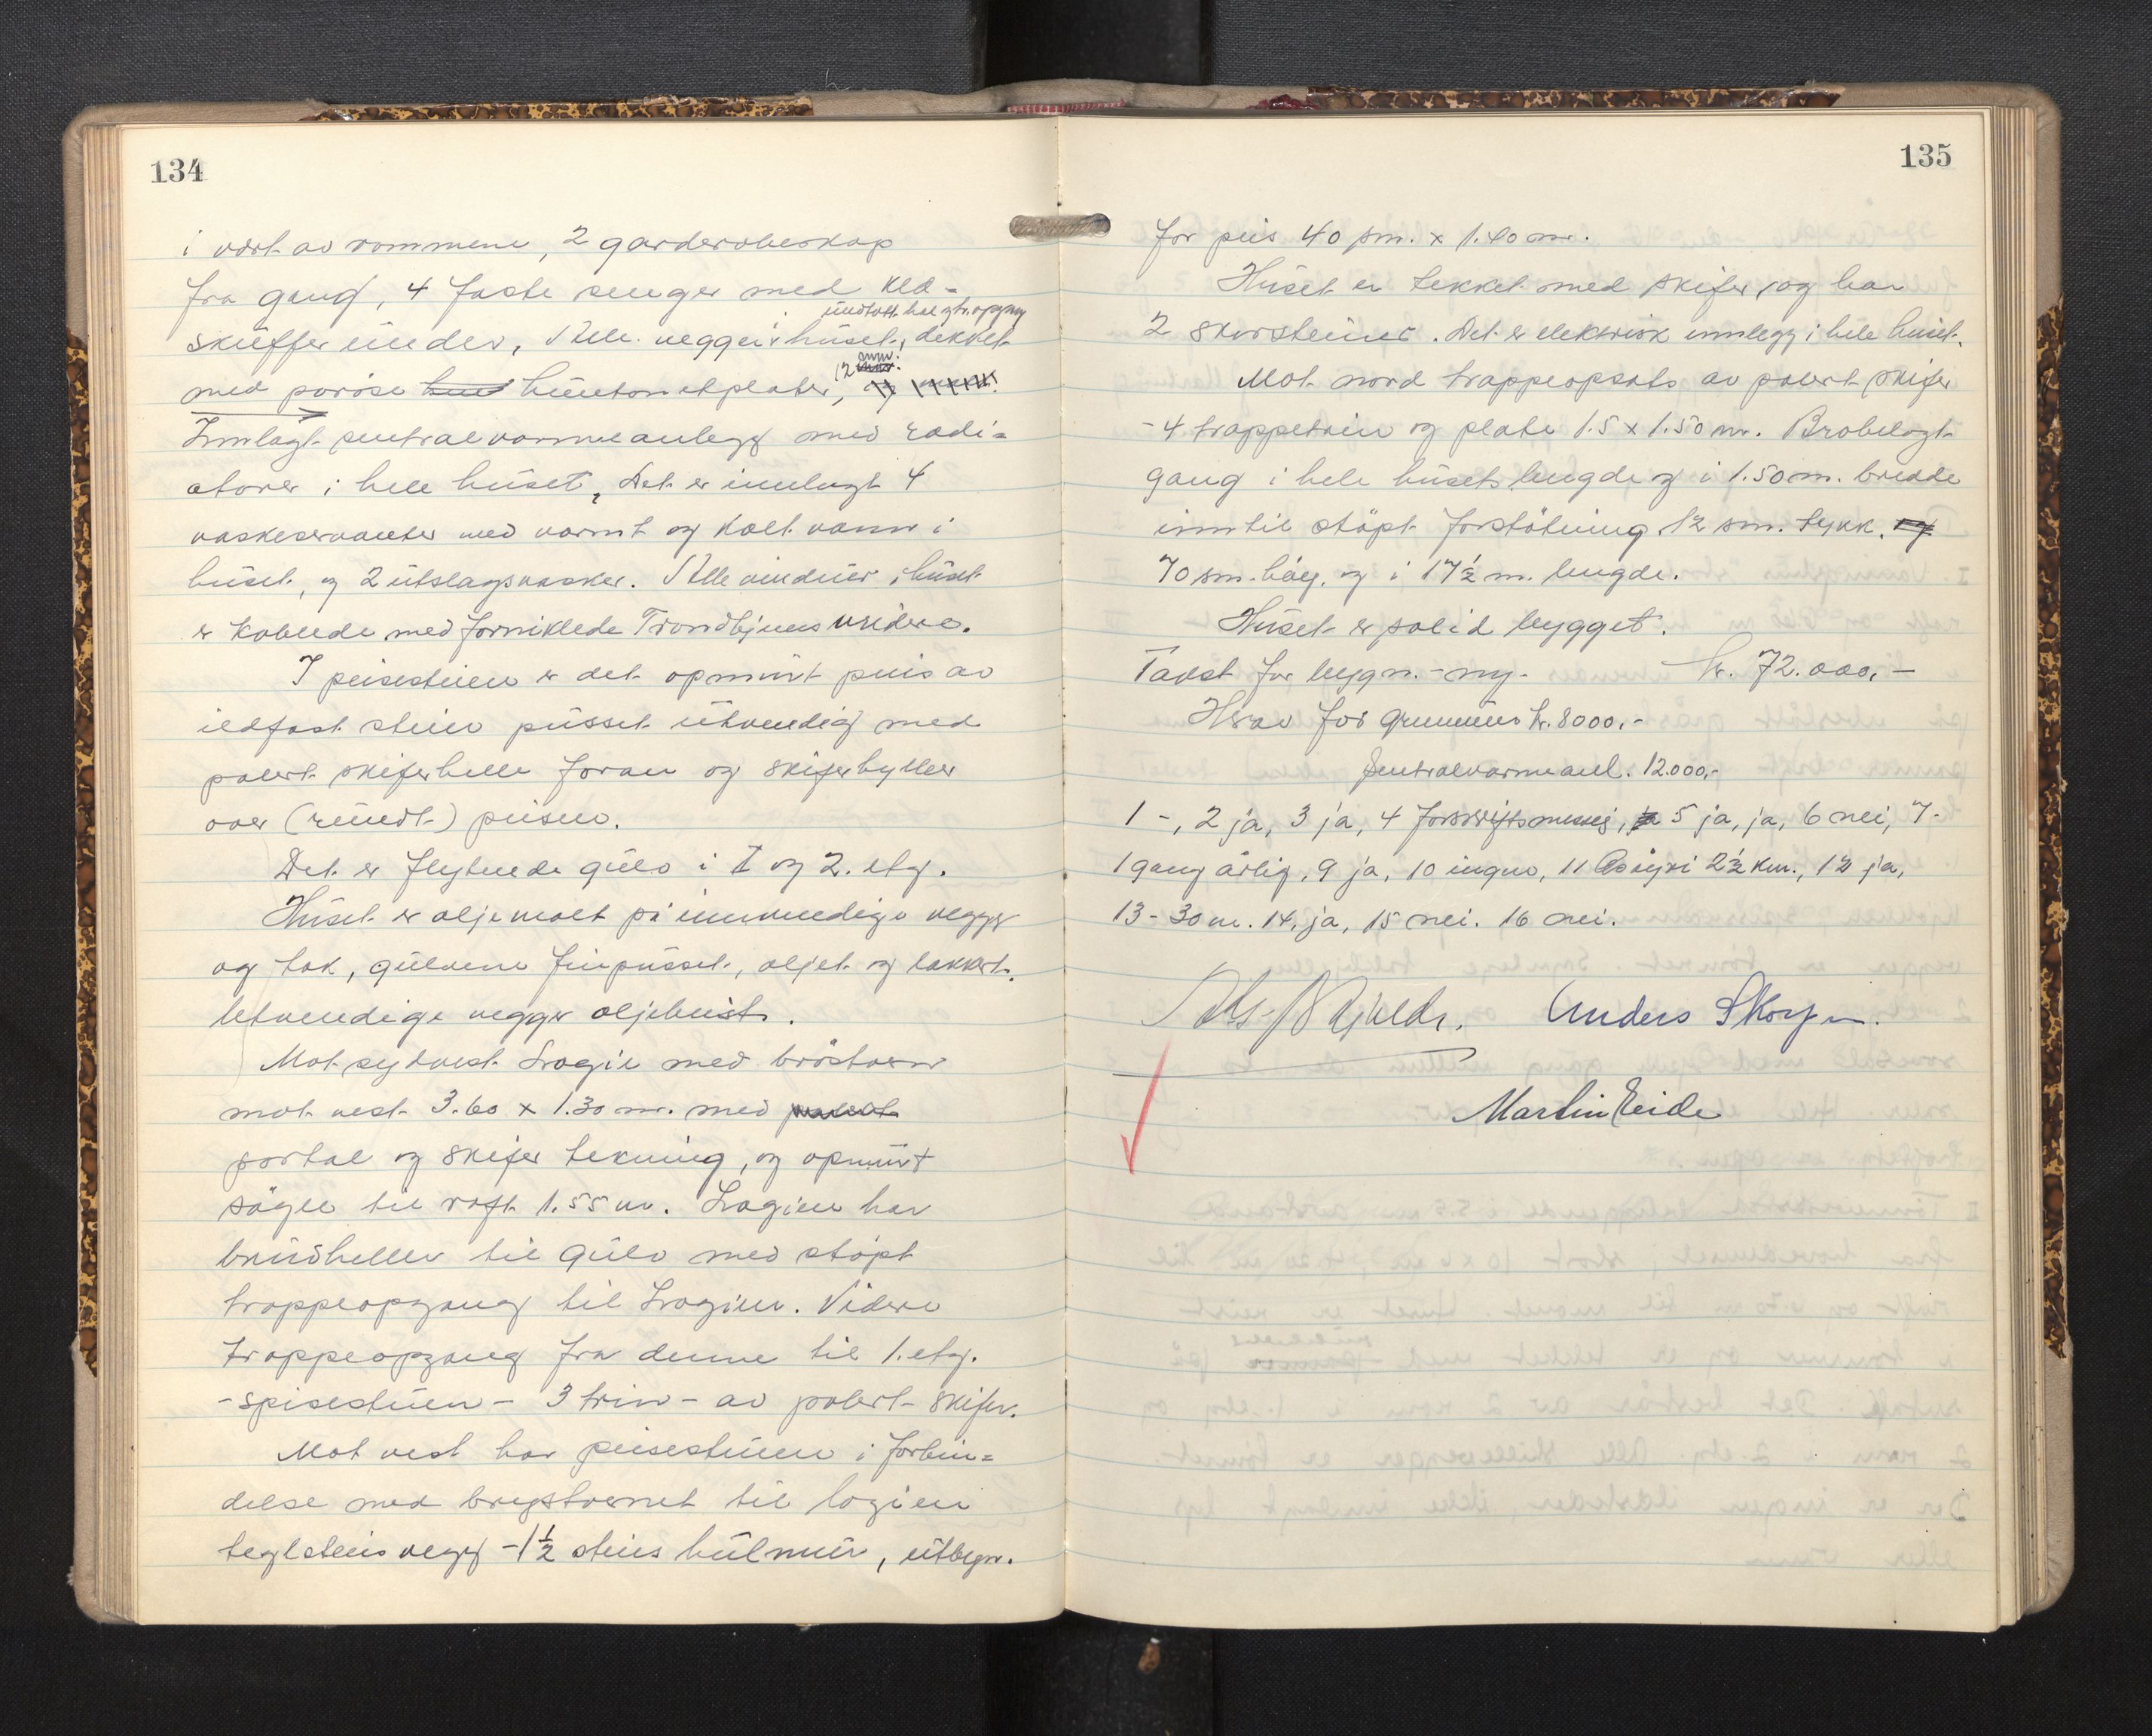 134
i vært av rommene, 2 garderobeskap
fra gang, 4 faste senger med klæ=
undtatt hee gtr. opgang
skuffer under, Alle vegger i huset, dekket
12 mm.
med porøse huntonitplater,
Innlagt sentralvarmeanlegg med radi=
atorer i hele huset, Det er innlagt 4
vaskeservanter med varmt og kolt vann i
huset, og 2 utslagsvasker. Alle vinduer i huset
er koblede med forniklede Trondhjems vridere.
I peisestuen er det opmurt peis av
ildfast stein pusset utvendig med
polert skiferhelle foran og skiferhyller
over (rundt) peisen.
Det er flytende gulv i I og 2. etg.
Huset er oljemalt på innvendige vegger
og tak, gulvene finpusset, oljet og lakkert.
Utvendige vegger oljebeist.
Mot sydvest Logie med bröstvern
mot vest 3.60 x 1.30 m. med
portal og skifer tekning, og opmurt
søyle til raft 1.55 m. Logien har
bruddheller til gulv med støpt
trappeopgang til Logien. Videre
trappeopgang fra denne til 1. etg.
- spisestuen - 3 trin - av polert skifer.
Mot vest har peisestuen i forbin=
delse med brystvernet til logien
teglsteins vegg - 1½ steins hulmur, utbygn.
135
for peis 40 sm. x 1.40 m.
Huset er tekket med skifer, og har
2 skorsteiner. Det er elektrisk innlegg i hele huset.
Mot nord trappeopsats av polert skifer
- 4 trappetrin og plate 1.5 x 1.50 m. Brobelagt
gang i hele husets lengde og i 1.50 m. bredde
inntil støpt forstøtning 12 sm. tykk.
70 sm. høg, og i 17½ m. lengde.
Huset er solid bygget.
Takst for bygn. - ny - kr. 72.000,-
Herav for grunnmur kr. 8000.-
Sentralvarmeanl. 12.000,-
1 -, 2 ja, 3 ja, 4 forskriftsmessig, 5 ja, ja, 6 nei, 7-
1 gang årlig, 9 ja, 10 ingen, 11 2½ km., 12 ja,
13 - 30 m. 14, ja, 15 nei. 16 nei.
Anders Skor
Martin Eide